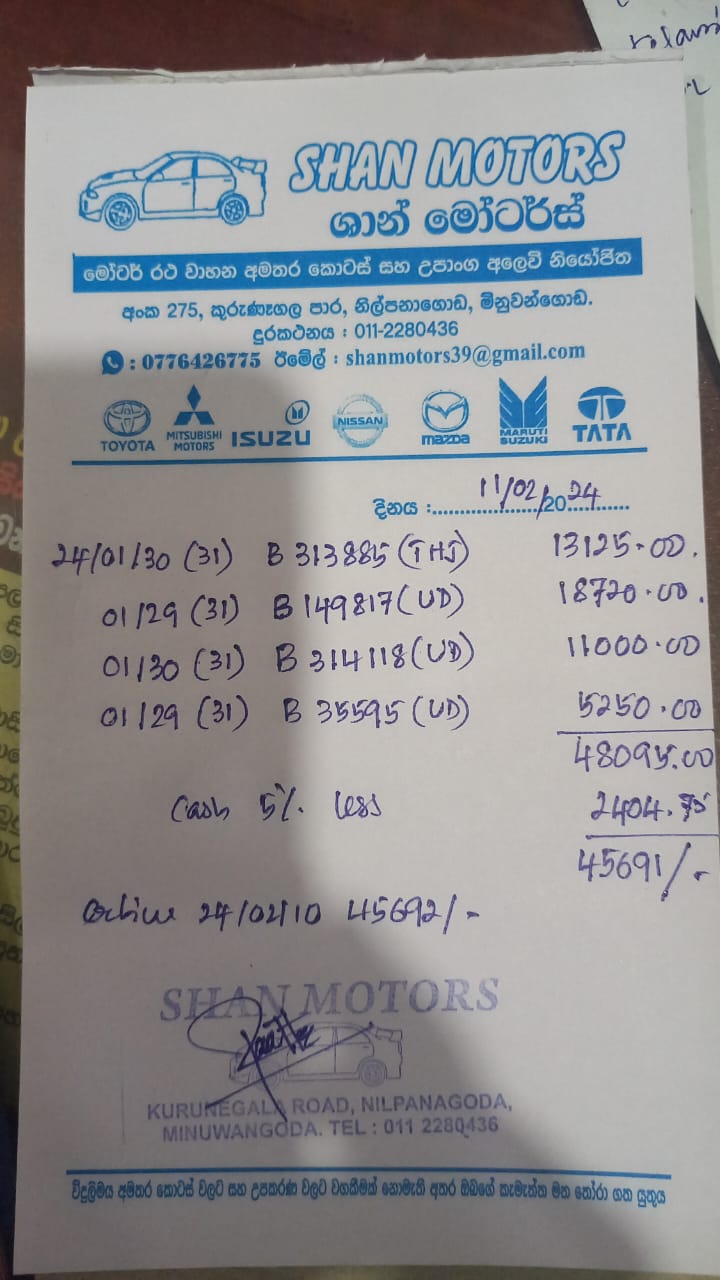 SHAN MOTORS
ශාන් මෝටර්ස්
මෝටර් රථ වාහන අමතර කොටස් සහ උපාංග අලෙවි නියෝජිත
අංක 275, කුරුණෑගල පාර, නිල්පනාගොඩ, මිනුවන්ගොඩ.
දුරකථනය : 011-2280436
: 0776426775 ඊමේල් : shanmotors39@gmail.com
TOYOTA MITSUBISHI MOTORS ISUZU NISSAN mazda MARUTI SUZUKI TATA
දිනය :11/02/2024
24/01/30 (31) B 313885 (THJ) 13125.00.
01/29 (31) B 149817 (UD) 18720.00.
01/30 (31) B 314118 (UD) 11000.00
01/29 (31) B 35595 (UD) 5250.00
48095.00
Cash 5% less 2404.75
45691/-
24/02/10 45692/-
SHAN MOTORS
KURUNEGALA ROAD, NILPANAGODA,
MINUWANGODA. TEL : 011 2280436
විදුලිමය අමතර කොටස් වලට සහ උපකරණ වලට වගකීමක් නොමැති අතර ඔබගේ කැමැත්ත මත තෝරා ගත යුතුය